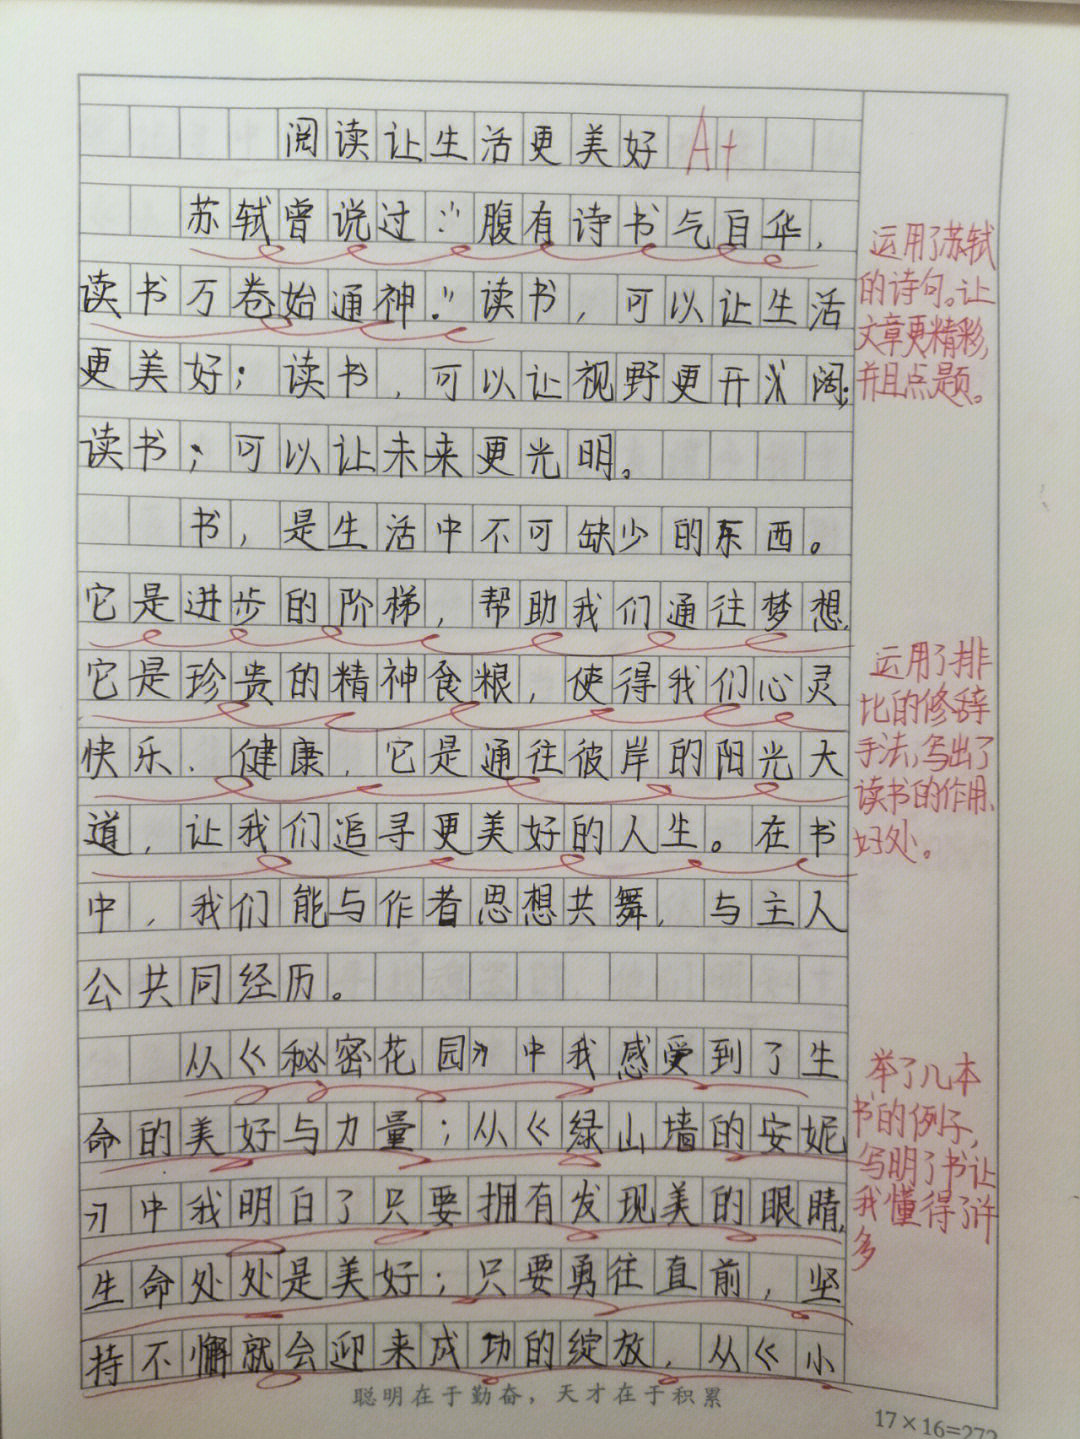 阅读让生活更美好 A+
苏轼曾说过："腹有诗书气自华，
读书万卷始通神."读书，可以让生活
更美好；读书，可以让视野更开阔；
读书；可以让未来更光明。
书，是生活中不可缺少的东西。
它是进步的阶梯，帮助我们通往梦想，
它是珍贵的精神食粮，使得我们心灵
快乐、健康，它是通往彼岸的阳光大
道，让我们追寻更美好的人生。在书
中，我们能与作者思想共舞，与主人
公共同经历。
从《秘密花园》中我感受到了生
命的美好与力量；从《绿山墙的安妮
》中我明白了只要拥有发现美的眼睛，
生命处处是美好；只要勇往直前，坚
持不懈就会迎来成功的绽放，从《小
聪明在于勤奋，天才在于积累
17×16=272
运用了苏轼
的诗句。让
文章更精彩，
并且点题。
运用了排
比的修辞
手法，写出了
读书的作用、
好处。
举了几本
书的例子，
写明了书让
我懂得了许
多